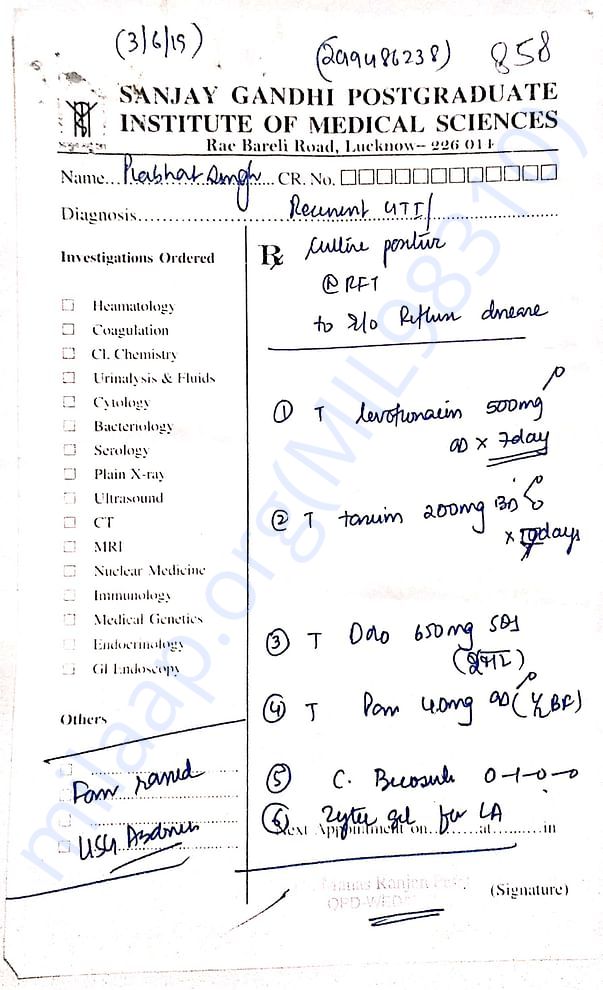 (3/6/19)
(2019486238)
858
SANJAY GANDHI POSTGRADUATE
INSTITUTE OF MEDICAL SCIENCES
Rae Bareli Road, Lucknow-226 014
Name... Prabhat Singh ... CR. No.
Diagnosis...... Recurrent UTI
Investigations Ordered
Heamatology
Coagulation
Cl. Chemistry
Urinalysis & Fluids
Cytology
Bacteriology
Serology
Plain X-ray
Ultrasound
CT
MRI
Nuclear Medicine
Immunology
Medical Genetics
Endocrinology
GI Endoscopy
Others
USG Abdomen
Rx
culture positive
(N) RFT
to r/o Reflux disease
① T levofloxacin 500mg
OD x 7day
② T taxim 200mg BD
x days
③ T Dolo 650mg SOS
(बुखार)
④ T Pan 40mg OD (½ BF)
⑤ C. Becosule 0-1-0-0
⑥ Zytee gel for LA
Next Appointment on.........at.........in
Manas Ranjan
OPD-WED
(Signature)
milaap.org(MIL98310)